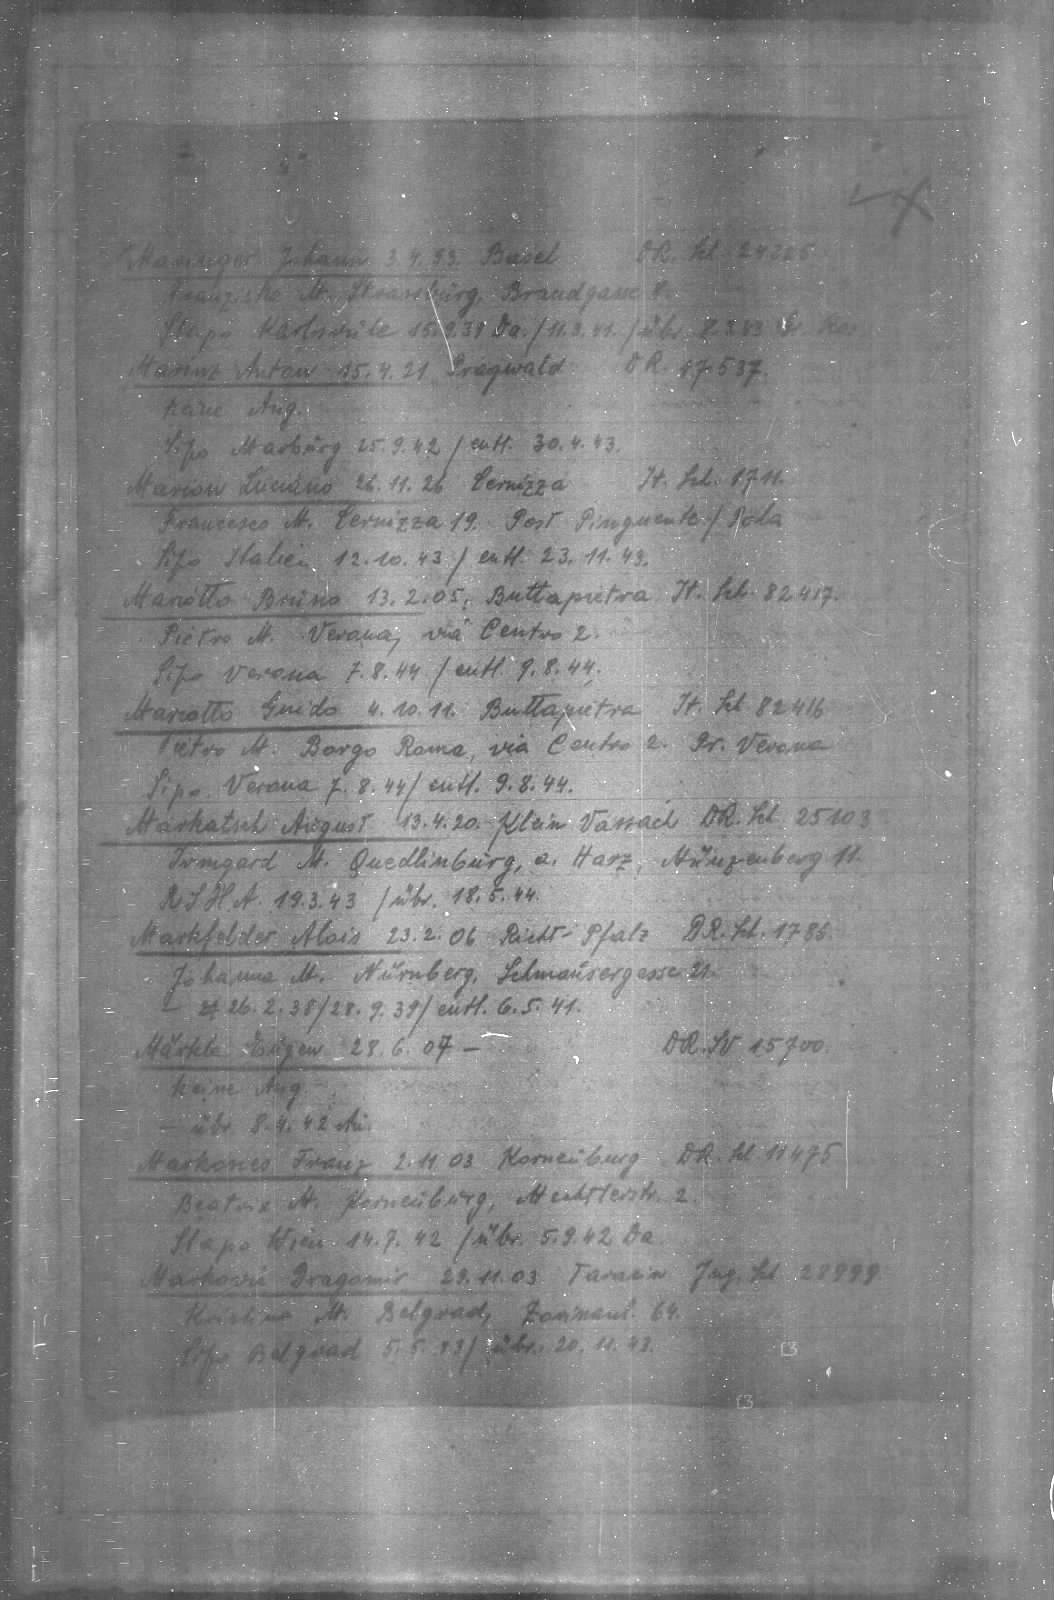 Johann 3.4.93. Basel DR. Sch. 24205
Franziska M. Strassburg, Brandgasse 8.
Stapo Karlsruhe 15.9.38 Da. / 11.3.41. / übr. 2.3.43
Marinz Anton 15.4.21 Pragwald DR. 17537.
Keine Ang.
Sipo Marburg 25.9.42 / entl. 30.4.43.
Marion Luciano 26.11.26 Cernizza It. Sch. 1711.
Francesco M. Cernizza 19. Post Pinguente / Pola
Sipo Italien 12.10.43 / entl. 23.11.43.
Mariotto Bruno 13.2.05. Buttapietra It. Sch. 82417.
Pietro M. Verona, via Centro 2.
Sipo Verona 7.8.44 / entl. 9.8.44.
Mariotto Guido 4.10.11. Buttapietra It. Sch 82416
Pietro M. Borgo Roma, via Centro 2. Pr. Verona
Sipo. Verona 7.8.44 / entl. 9.8.44.
Markatsch August 13.4.20. Klein Vassach DR. Sch 25103
Irmgard M. Quedlinburg, a. Harz, Münzenberg 11.
R.S.H.A. 19.3.43 / übr. 18.5.44.
Markfelder Alois 23.2.06 Pfalz DR. Sch. 1786
Johanna M. Nürnberg, Schmausergasse 21.
26.2.38 / 28.9.39 / entl. 6.5.41.
Märkle Eugen 28.6.07 – DR. SV 15700.
Keine Ang
– übr. 8.4.42
Franz 2.11.03 Korneuburg DR. Sch 11475
M. Korneuburg, 2.
Stapo Wien 14.7.42 / übr. 5.9.42 Da
Markovic Dragomir 29.11.03 Jug. Sch 28999
Kristina M. Belgrad, 64.
Sipo Belgrad 5.5.43 / übr. 20.11.43.